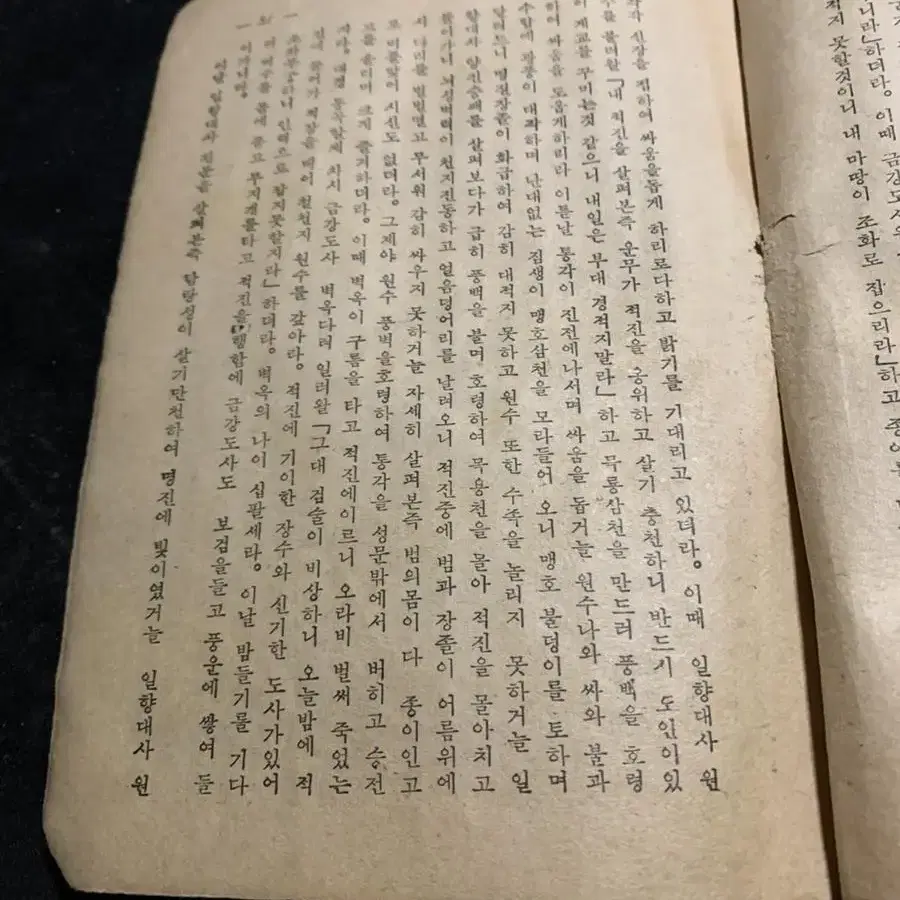 니라」하더라。 이때 금강도사
적지 못할것이니 내 마땅이 조화로 잡으리라」하고 종이
신장을 접하여 싸움을돕게 하리로다하고 밝기를 기대리고 있더라。 이때 일향대사 원
수를 불러왈「내 적진을 살펴본즉 운무가 적진을 웅위하고 살기 충천하니 반드시 도인이있
어 계교를 꾸미는것 같으니 내일은 부대 경적지말라」하고 무룡삼천을 만드러 풍백을 호령
하여 싸움을 도웁게하리라 이튿날 통각이 진전에나서며 싸움을 돕거늘 원수나와 싸와 불과
수합에 광풍이 대작하며 난대없는 짐생이 맹호삼천을 모라들어 오니 맹호 불덩이를 토하며
달려드니 명진장졸이 화급하여 감히 대적지 못하고 원수 또한 수족을 놀리지 못하거늘 일
향대사 양진승패를 살펴보다가 급히 풍백을 불며 호령하여 목용천을 몰아 적진을 몰아치고
들어가니 뇌성벽력이 천지진동하고 얼음덩어리를 날려오니 적진중에 범과 장졸이 어름위에
서 다리를 벌벌떨고 무서워 감히 싸우지 못하거늘 자세히 살펴본즉 범의몸이 다 종이인고
로 비를맞이 시신도 없더라。 그제야 원수 풍벽을호령하여 통각을 성문밖에서 버히고 승전
고를 울리며 크게 즐기하더라。 이때 벽옥이 구름을 타고 적진에이르니 오라비 벌써 죽었는
지라。 대경 통곡할제 차시 금강도사 벽옥다려 일러왈「그대 검술이 비상하니 오늘밤에 적
진에 들어가 적장을 베어 철천지 원수를 갚아라。 적진에 기이한 장수와 신기한 도사가있어
인력으로 잡지못할지라」하더라。 벽옥의 나이 십팔세라。 이날 밤들기를 기다
려 비수를 품에 품고 무지개를타고 적진을 행함에 금강도사도 보검을들고 풍운에 쌓여 들
어가니라。
이날 일향대사 진문을 살펴본즉 탐랑성이 살기만천하여 명진에 빛이였거늘 일향대사 원